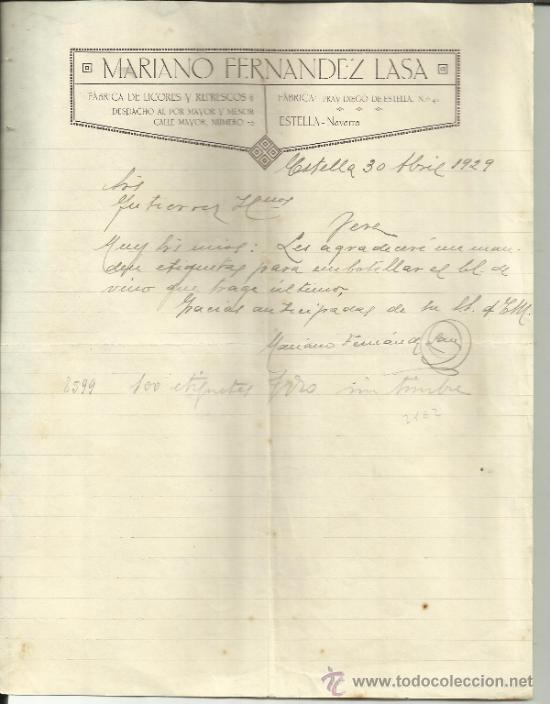 MARIANO FERNANDEZ LASA
FÁBRICA DE LICORES Y REFRESCOS
DESPACHO AL POR MAYOR Y MENOR
CALLE MAYOR, NÚMERO
FÁBRICA: FRAY DIEGO DE ESTELLA, N.º
ESTELLA-Navarra
Estella 30 Abril 1929
Srs
Gutierrez Hnos
Jerez
Muy Srs mios: Les agradeceré me man-
den etiquetas para embotellar el bl. de
vino que traje último,
Gracias anticipadas de su
Mariano Fernández Lasa
2599 100 etiquetas sin timbre
todocoleccion
www.todocoleccion.net